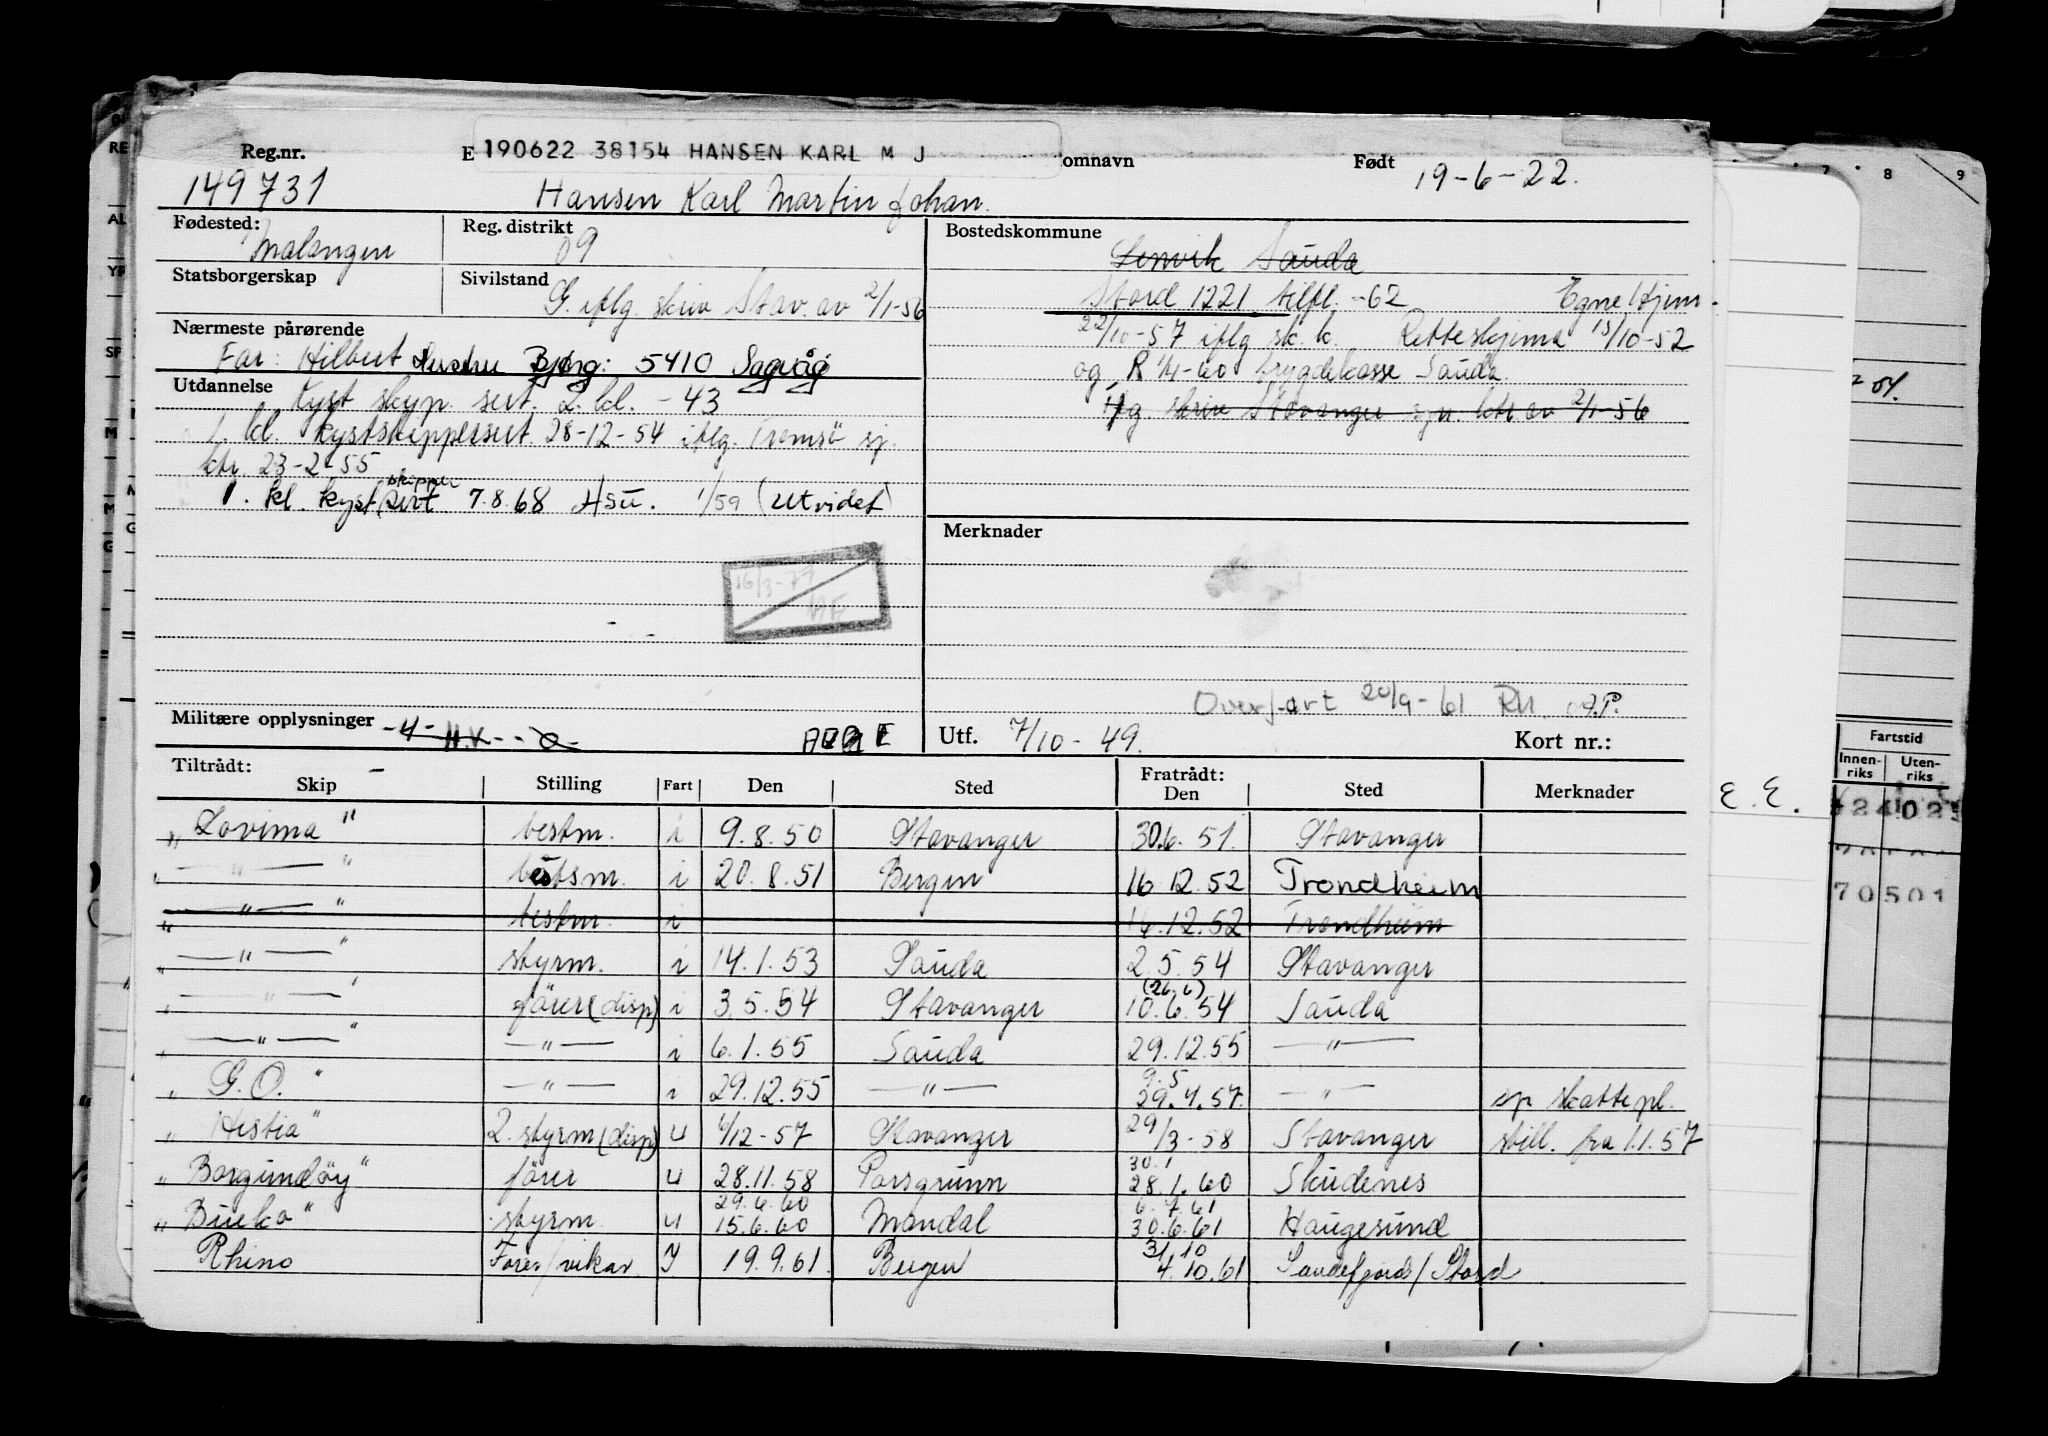 Reg.nr. E 190622 38154 HANSEN KARL M J omnavn Født 19-6-22.
149731 Hansen Karl Martin Johan.
Fødested: Malangen Reg. distrikt 09 Bostedskommune
Lenvik Sauda
Statsborgerskap Sivilstand G. iflg. skriv Stav. av 2/1-56
Stord 1221 tilfl. -62 Egne Hjem.
22/10-57 iflg sk. k. Retteskjema 15/10-52
og R 1/4-60 trygdekasse Sauda
iflg. skriv Stavanger av 2/1-56
Nærmeste pårørende
Far: Hilbert Hustru Bjørg: 5410 Sagvåg
Utdannelse Kyst skyp. sert. 2. kl. - 43
1. kl. kystskippersert 28-12-54 iflg. Tromsö sj.
ktr. 23-2-55
1. kl. kyst skipper sert 7.8.68 Hsu. 1/59 (Utvidet)
16/3-77
Merknader
Overfart 20/9-61
Militære opplysninger -4- H.V. Utf. 7/10-49. Kort nr.:
Tiltrådt: Fratrådt:
Skip Stilling Fart Den Sted Den Sted Merknader
"Lovima" bestm. i 9.8.50 Stavanger 30.6.51. Stavanger
" — " — " båtsm. i 20.8.51 Bergen 16.12.52 Trondheim
" — " — " bestm. i 16.12.52 Trondheim
" — " — " styrm. i 14.1.53 Sauda 2.5.54 Stavanger
" — " — " förer (disp) i 3.5.54 Stavanger (26.6) 10.6.54 Sauda
" — " — " — " — i 6.1.55 Sauda 29.12.55 — " —
"G.O." — " — i 29.12.55 — " — 9.5 29.4.57. — " — skattepl.
"Hestia" 2. styrm (disp) u 4/12-57 Stavanger 29/3-58 Stavanger still. fra 1.1.57
"Borgundöy" förer u 28.11.58 Porsgrunn 30.1 28.1.60 Skudenes
"Bueko" styrm. u 29.6.60 15.6.60 Mandal 6.7.61 30.6.61 Haugesund
Rhino Förer/vikar I 19.9.61 Bergen 31.10 4.10.61 Sandefjord/Stord
7 8 9
Fartstid
Innen-riks Uten-riks
E.E.
70501